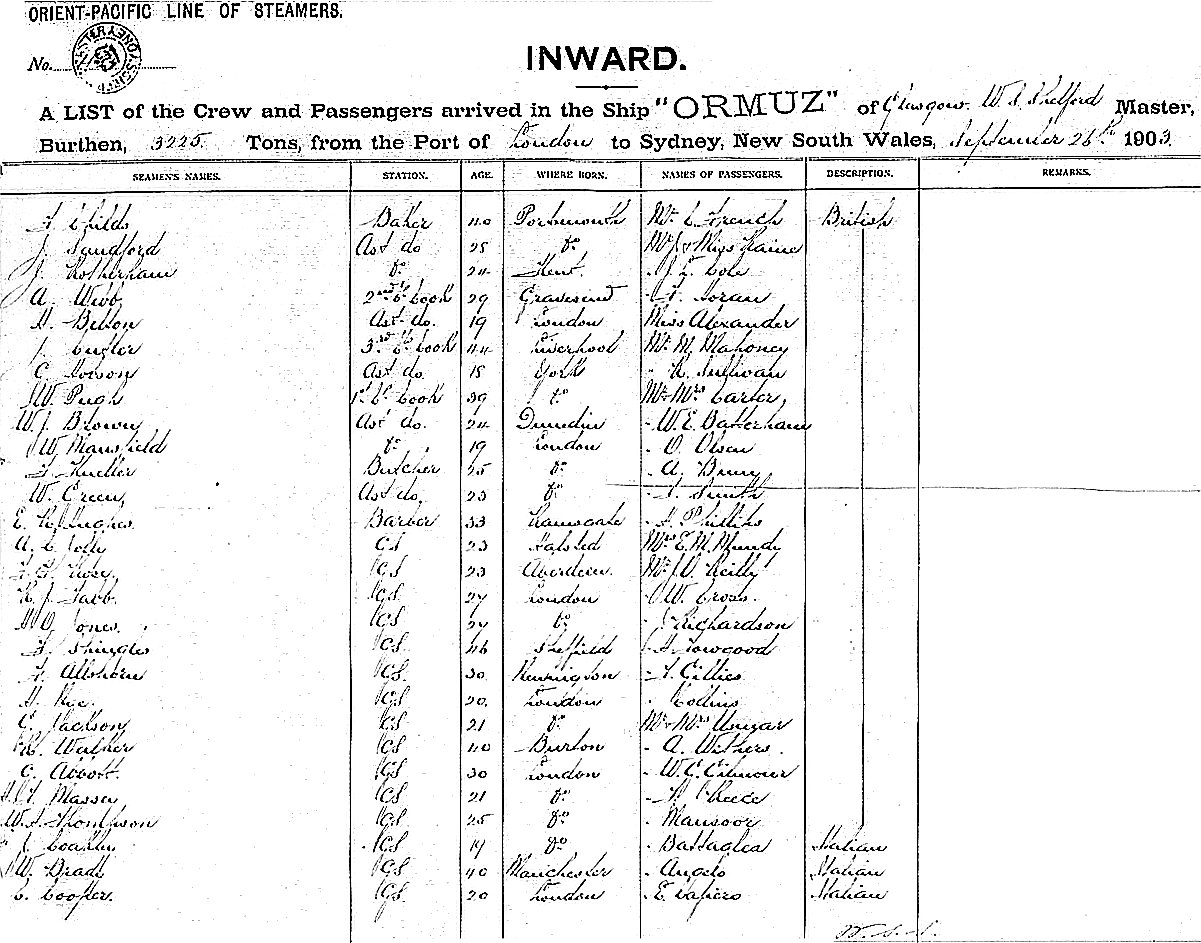 ORIENT-PACIFIC LINE OF STEAMERS.
No.
INWARD.
A LIST of the Crew and Passengers arrived in the Ship "ORMUZ" of Glasgow. W. S. Shelford Master,
Burthen, 3225 Tons, from the Port of London to Sydney, New South Wales, September 26th 1903.
SEAMEN'S NAMES. STATION. AGE. WHERE BORN. NAMES OF PASSENGERS. DESCRIPTION. REMARKS.
F. Childs Baker 40 Portsmouth Mr C. French British
J. Sandford Asst do 25 Do Mr J. & Miss Raine
J. Rotherham Do 24 Kent. J. L. Cole
A. Webb 2nd Cook 29 Gravesend Horan
H. Belton Asst do. 19 London Miss Alexander
3rd Cook 44 Liverpool Mr M. Mahoney
C. Hobson Asst do. 18 York Sullivan
W. Pugh 1st Cook 39 Do Mr Mrs Carter
W. J. Brown Asst do. 24 Dunedin W. E. Batterham
W. Mansfield Do 19 London O. Olsen
Butcher 25 Do A.
W. Green Asst do. 23 Do Smith
E. Hughes Barber 33 Ramsgate Phillips
A. C. Jolly GS 23 Halsted Mrs E. M. Mundy
Rose GS 23 Aberdeen. Mr J. O. Reilly
Tabb. GS 27 London W. Cross.
Jones. GS 27 Do J. Richardson
Shingles GS 46 Sheffield Towgood
Allshorn GS 30 Kennington Gillies
GS 20 London Collins
C. Jackson GS 21 Do Mr Mrs Ungar
Walker GS 40 Burton A. Withers.
C. Abbott. GS 30 London W. C. Gilmour
Massey GS 21 Do Reece
Thompson GS 25 Do Mansoor
GS 19 Do Battaglea Italian
W. Bradl GS 40 Manchester Angelo Italian
C. Cooper. GS 20 London E. Italian
W. S. S.